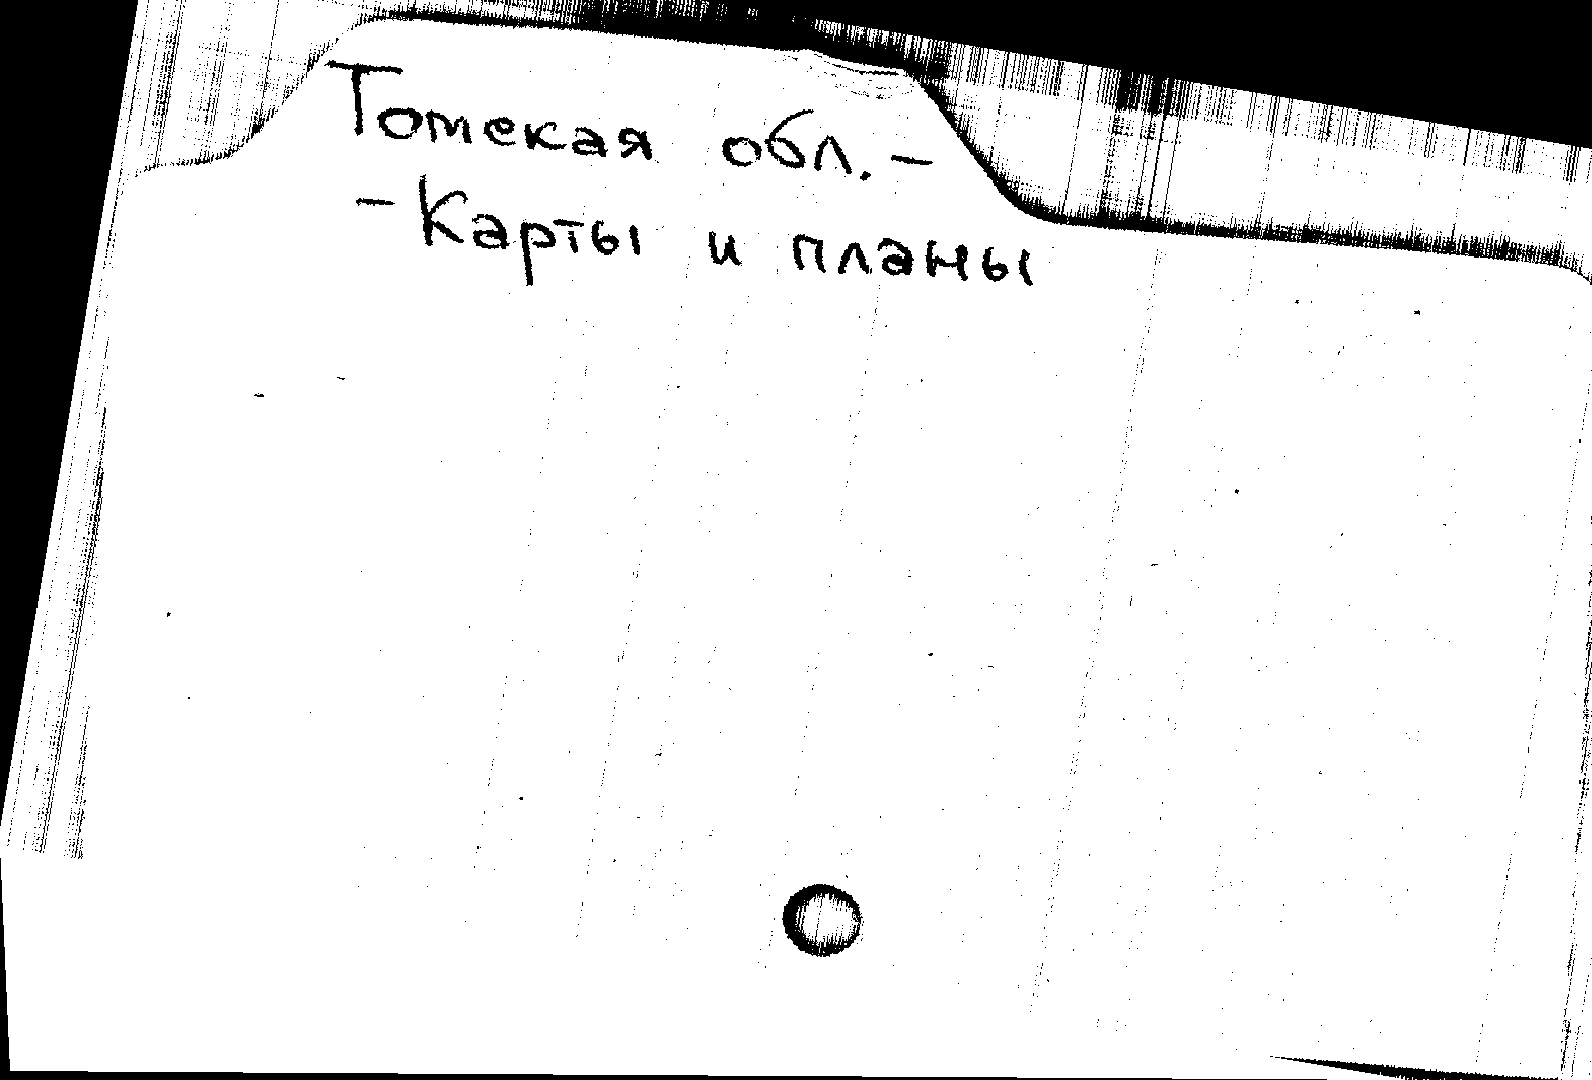 Томская обл. –
– Карты и планы